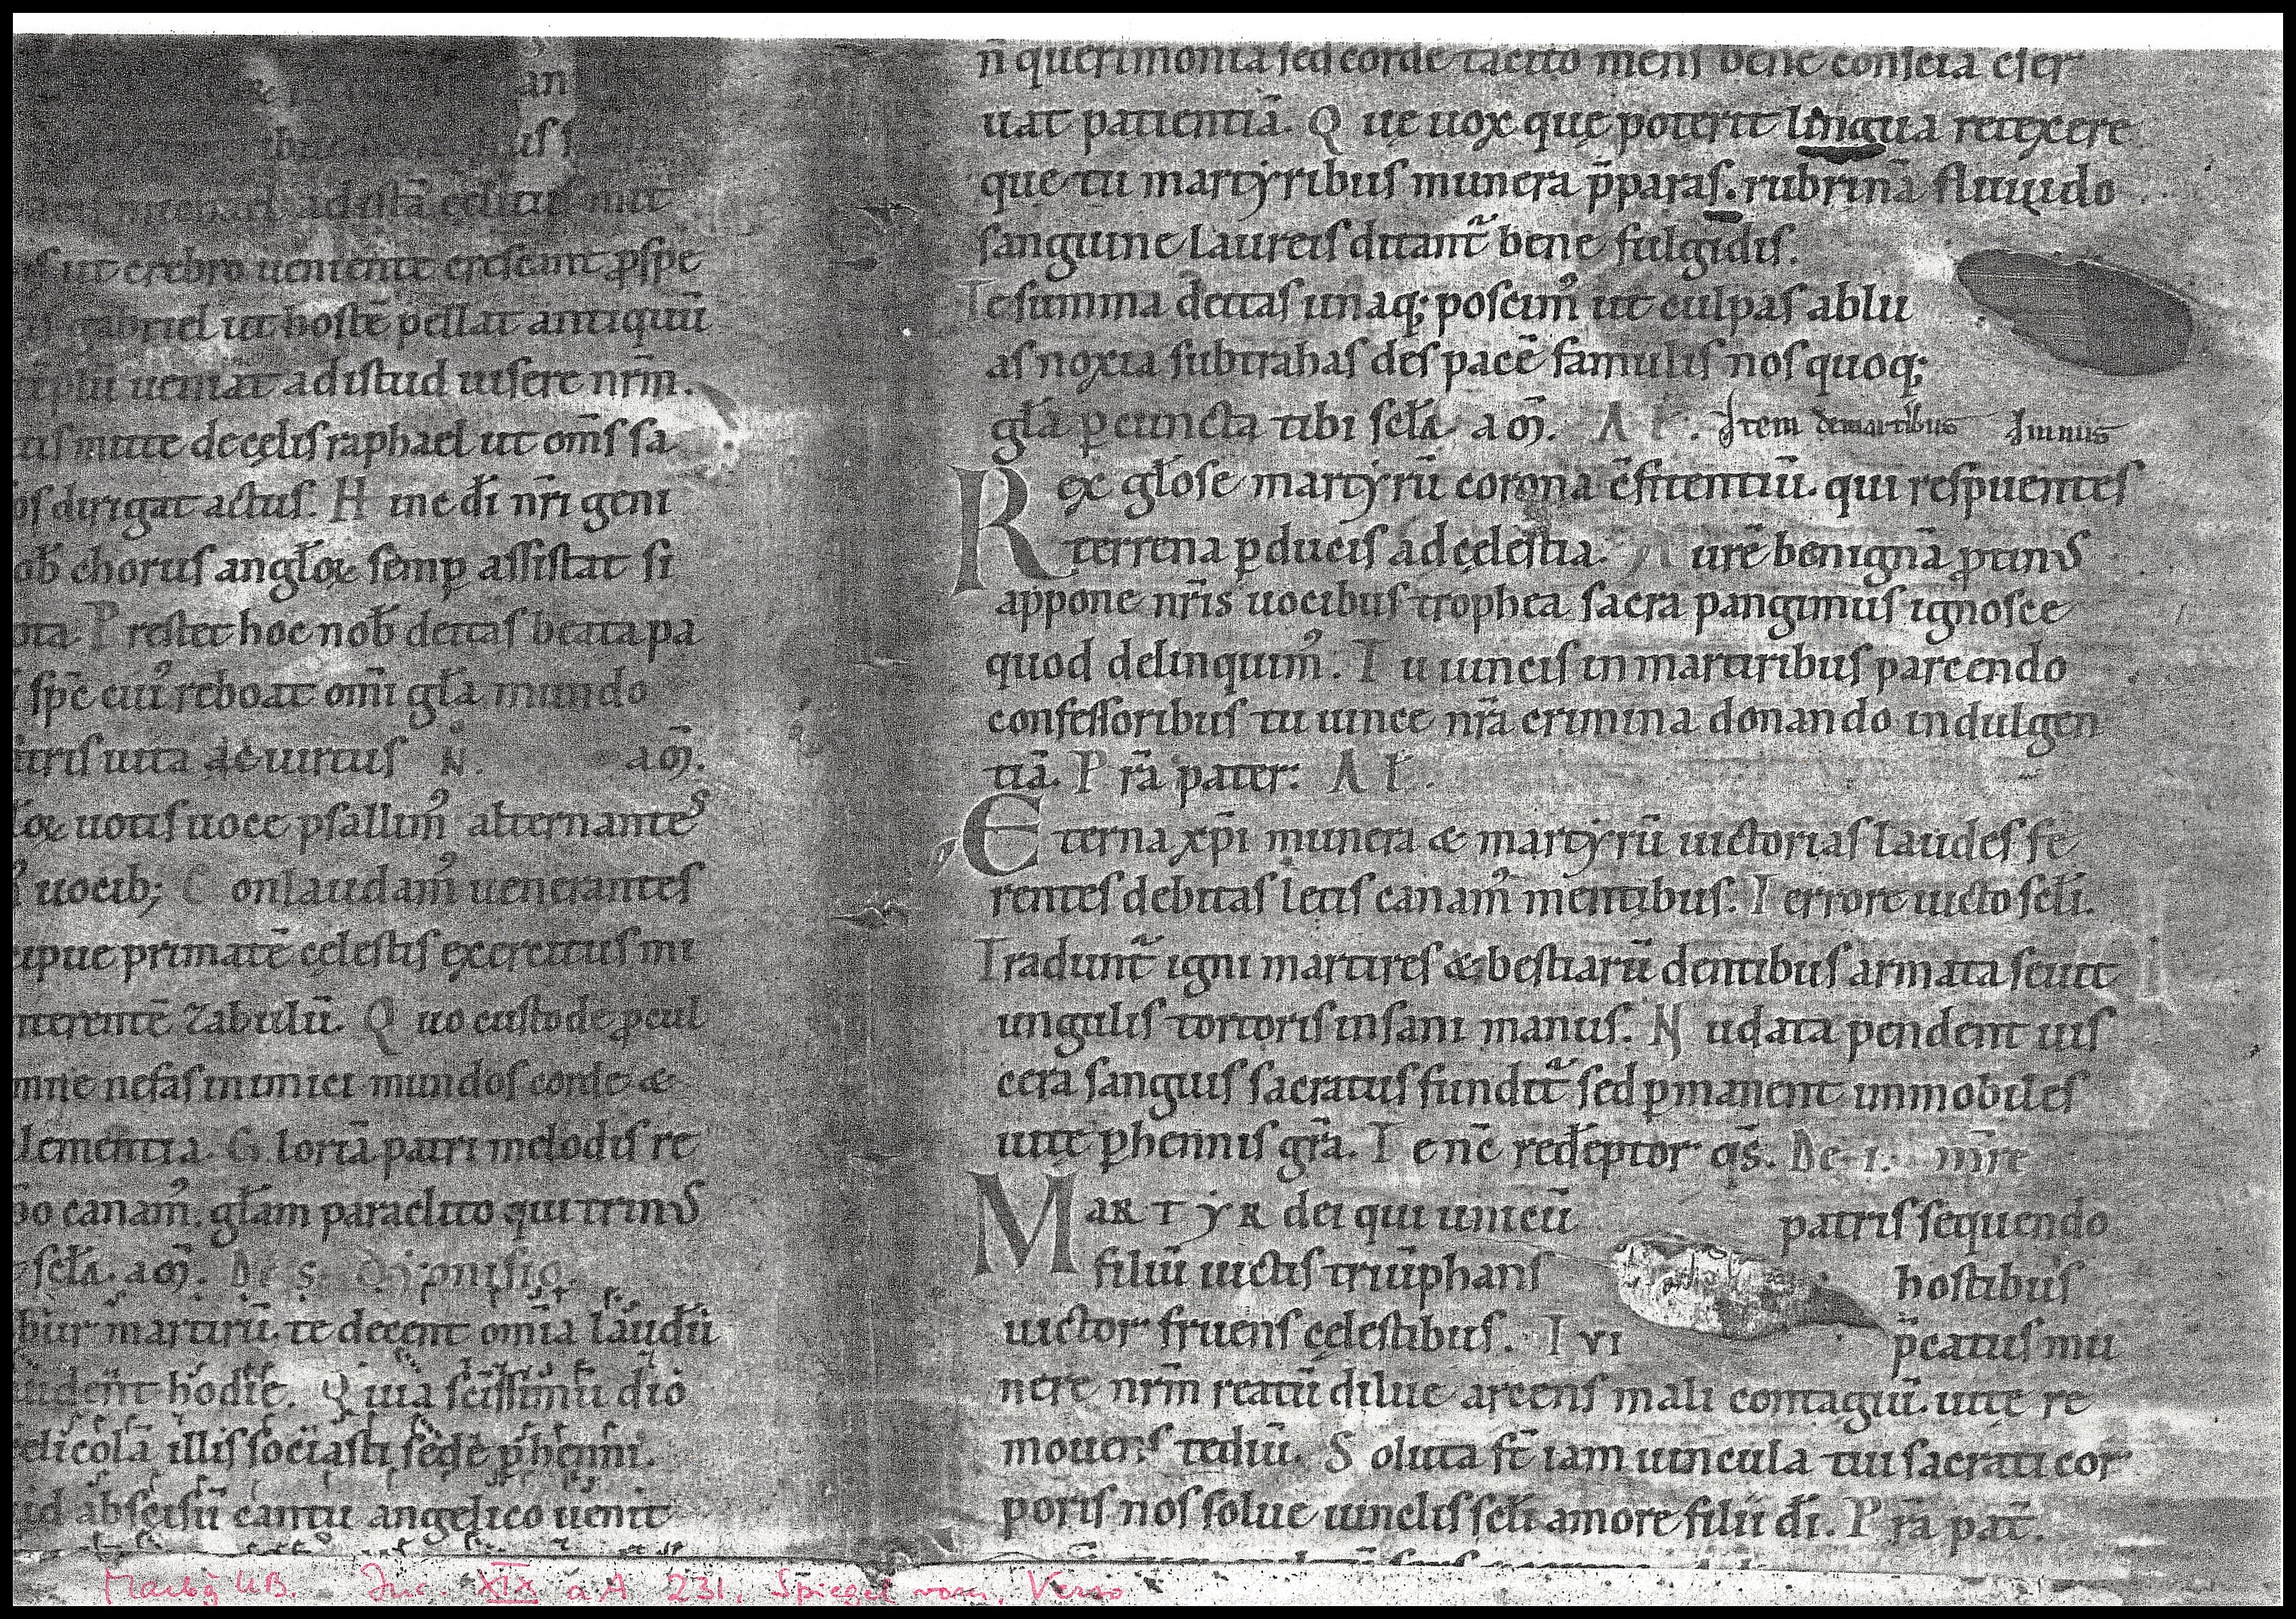 an
us s
ad istā cęlitus mitte
ut crebro veniente crescant ꝓspe
gabriel ut hostē pellat antiquū
veniat ad istud visere nr̄m.
mitte de cęlis raphael ut om̄s sa
os dirigat actus. H inc dī nr̄i geni
ob̄ chorus angl̄oꝝ semꝑ assistat si
ota P restet hoc nob̄ deitas beata pa
sp̄c cuiꝰ reboat om̄i gl̄a mundo
tris vita ac virtus N. am̄.
l̄oꝝ votis voce psallimꝰ alternantes
vocib; C onlaudamꝰ venerantes
cipue primatē cęlestis exercitus mi
nterentē zabulū. Q uo custode ꝓcul
mne nefas inimici mundos corde &
lementia. G loriā patri melodis re
canamꝰ. gl̄am paraclito qui trinus
scl̄a. am̄. De s. dyonisio.
bur martirū. te decent om̄ia laudū
udent hodie. Q uia sc̄issimū dio
elicolā illis sociasti sede ꝑhenni.
id abscisū cantu angelico venit
n̄ querimonia sed corde tacito mens bene conscia cser
uat patientiā. Q uę uox quę poterit lingua retexere
que tu martyribus munera p̄paras. rubri nā fluuido
sanguine laureis ditant᷑ bene fulgidis.
Te summa d̄eitas unaq; poscimꝰ ut culpas ablu
as noxia subtrahas des pacē famulis nos quoq;
gl̄a ꝑ cuncta tibi scl̄a am̄. A l̄. Item de martiribus Imnus
R ex gl̄ose martyrū corona c̄fitentiū. qui respuentes
terrena ꝑducis ad cęlestia. A urē benignā ꝓtinus
appone nr̄is uocibus trophea sacra pangimus ignosce
quod delinquimꝰ. T u uincis in martiribus parcendo
confessoribus tu uince nr̄a crimina donando indulgen
tiā. P rā pater. A l̄.
E terna xp̄i munera & martyrū uictorias laudes fe
rentes debitas letis canamꝰ mentibus. T errore uicto scl̄i.
Tradunt᷑ igni martires & bestiarū dentibus armata seuit
ungulis tortoris insani manus. N udata pendent uis
cera sanguis sacratus fundit᷑ sed ꝑmanent immobiles
uitę ꝑhennis gr̄a. T e nc̄ red̄eptor qs̄. De .i. mr̄e
M ARTYR dei qui unicū patris sequendo
filiū uictis triūphans hostibus
uictor fruens cęlestibus. T VI p̄catus mu
nere nr̄m reatū dilue arcens mali contagiū. uite re
mouens tediū. S oluta st̄ iam uincula tui sacrati cor
poris nos solue uinclis scl̄i amore filii dī. P rā pat̄.
Marbg UB. Inc. XIX a A 231, Spiegel vorn, Verso